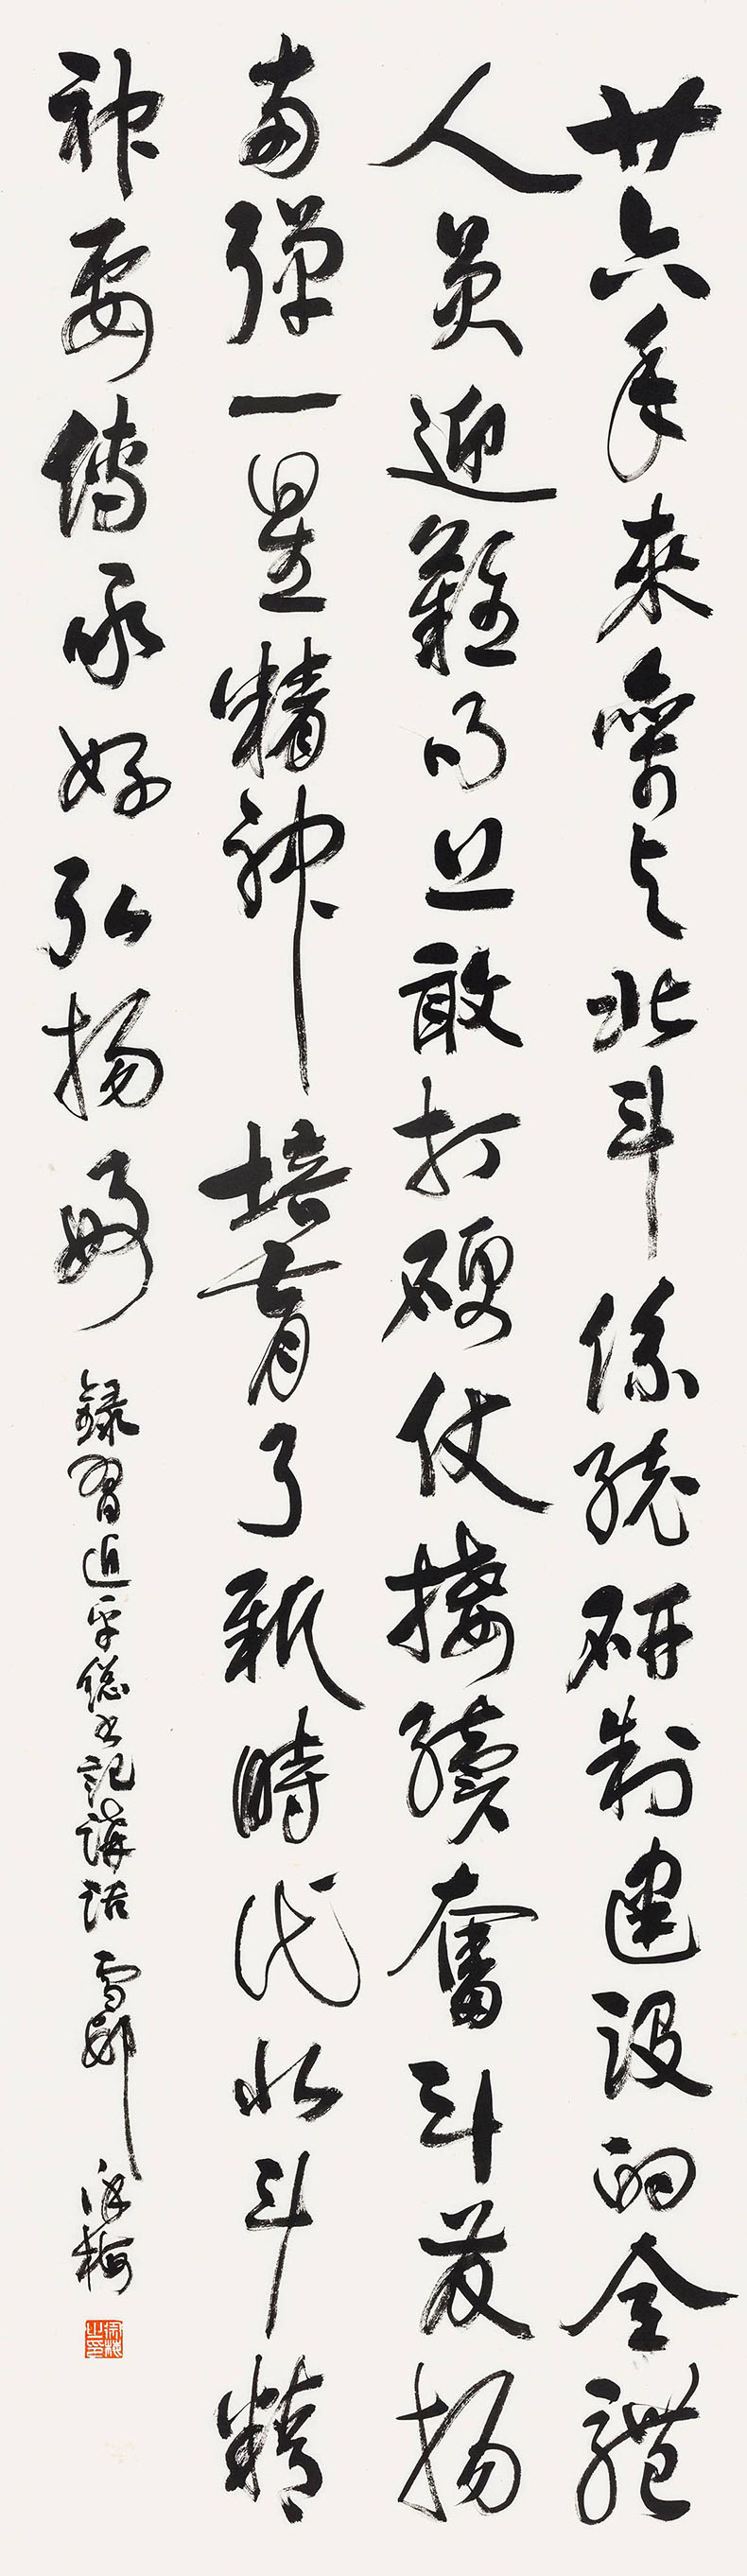 廿六年來參与北斗係統研制建設的全體
人員迎難而上敢打硬仗接續奮斗發揚
兩彈一星精神培育了新時代北斗精
神要傳承好弘揚好
錄習近平總書記講話雪邨徐梅
徐梅之印